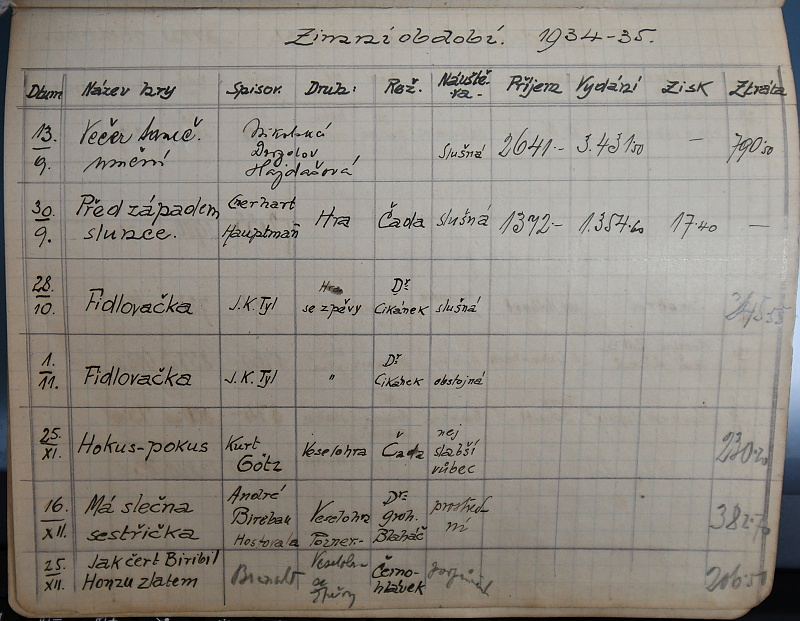 Zimní období. 1934-35.
Dtum Název hry Spisov. Druh: Rež. Návště-va- Příjem Vydání Zisk Ztráta
13. 9. Večer umění. Slušná 2641.- 3.431.50 — 790.50
Hajdašová
30. 9. Před západem slunce. Gerhart Hauptmañ Hra Čada slušná 1372.- 1.354.60 17.40 —
28. 10. Fidlovačka J.K. Tyl Hra se zpěvy Dř Cikánek slušná
1. 11. Fidlovačka J.K. Tyl " Dř Cikánek obstojná
25. XI. Hokus-pokus Kurt Götz Veselohra Čada nej slabší vůbec
16. XII. Má slečna sestřička André Birabau Hostovala Veselohra Pozner- Dr. groh. Blaháč prostřed ní 382.70
25. XII. Jak čert Biribil Honzu zlatem Černo-hlávek